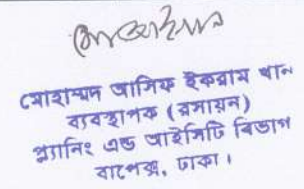 মোহাম্মদ আসিফ ইকরাম খান
ব্যবস্থাপক (রসায়ন)
প্ল্যানিং এন্ড আইসিটি বিভাগ
বাপেক্স, ঢাকা।